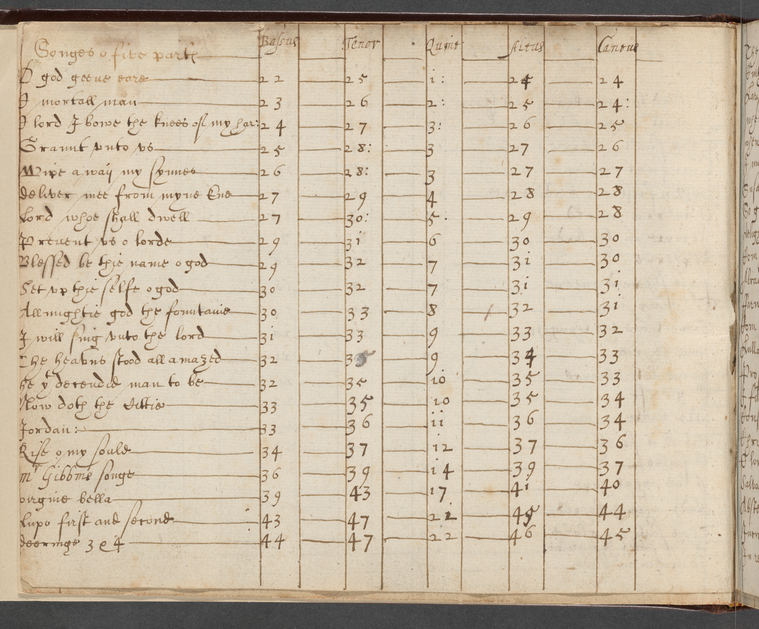 Songes of five parts Bassus Tenor Quint Altus Cantus
O god geeve eare 22 25 i: 24 24
I mortall man 23 26 2: 25 24:
O lord I bowe the knees of my har: 24 27 3: 26 25
Graunt unto us 25 28: 3 27 26
Wipe away my synnes 26 28: 3 27 27
deliver mee from myne Ene 27 29 4 28 28
Lord whoe shall dwell 27 30: 5: 29 28
Prevent us o lorde 29 3i 6 30 30
Blessed be thie name o god 29 32 7 3i 30
Set up thie selfe o god 30 32 7 3i 3i
Allmightie god the fountaine 30 33 8 32 3i
I will sing unto the lord 3i 33 9 33 32
The heavns stood all amazed 32 35 9 34 33
he yt detended man to be 32 35 i0 35 33
Now doth the Cittie 33 35 i0 35 34
Jordan: 33 36 ii 36 34
Rise o my soule 34 37 i2 37 36
mr Gibbins songe 36 39 i4 39 37
virgine bella 39 43 i7 4i 40
Lupo first and second 43 47 2i 45 44
deeringe 3 e 4 44 47 22 46 45